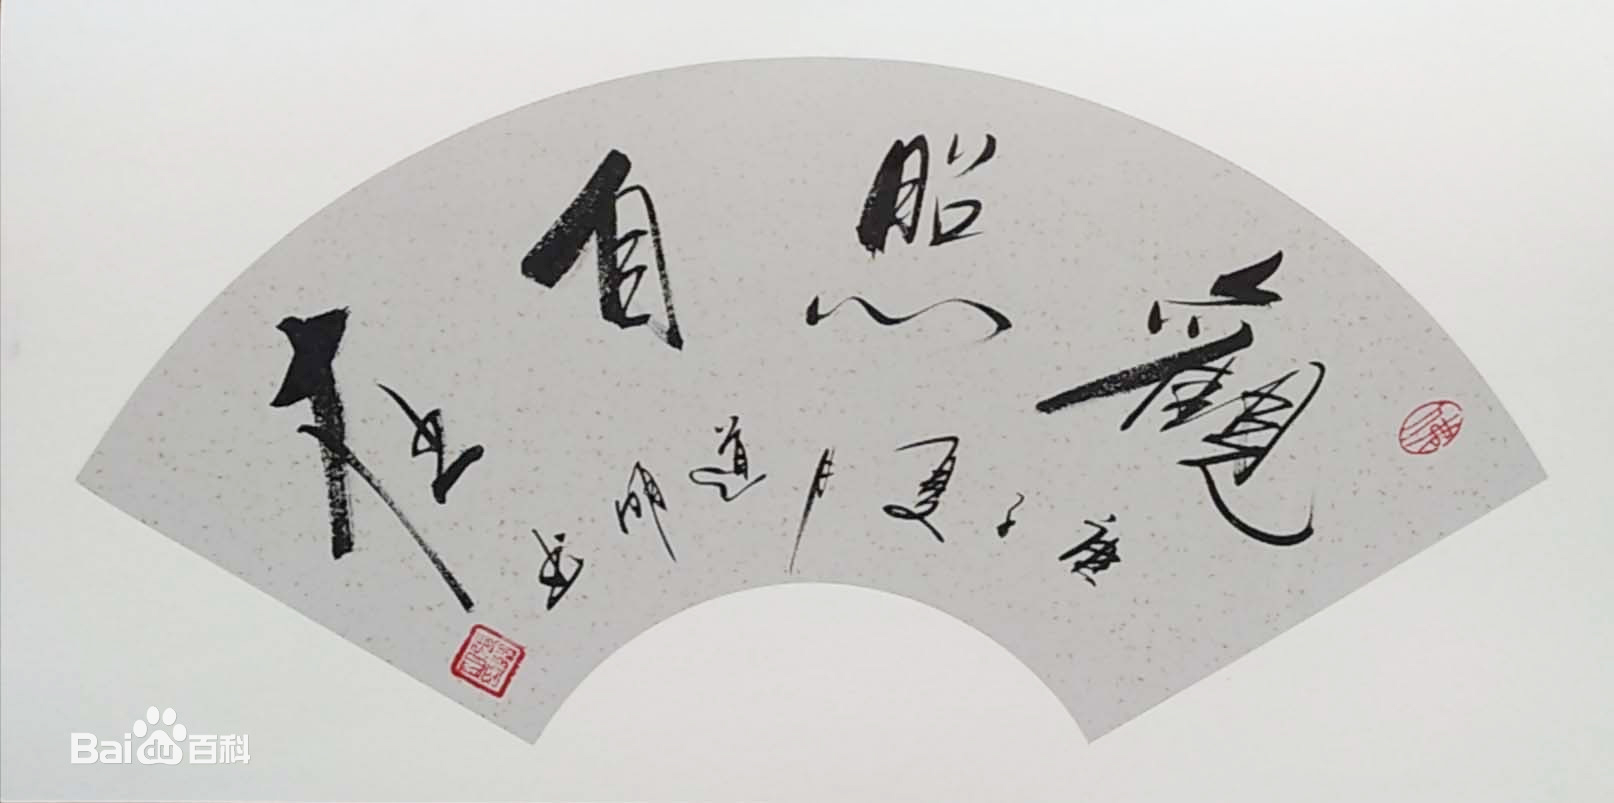 觀照自在
庚子夏月道明书
Bai du 百科